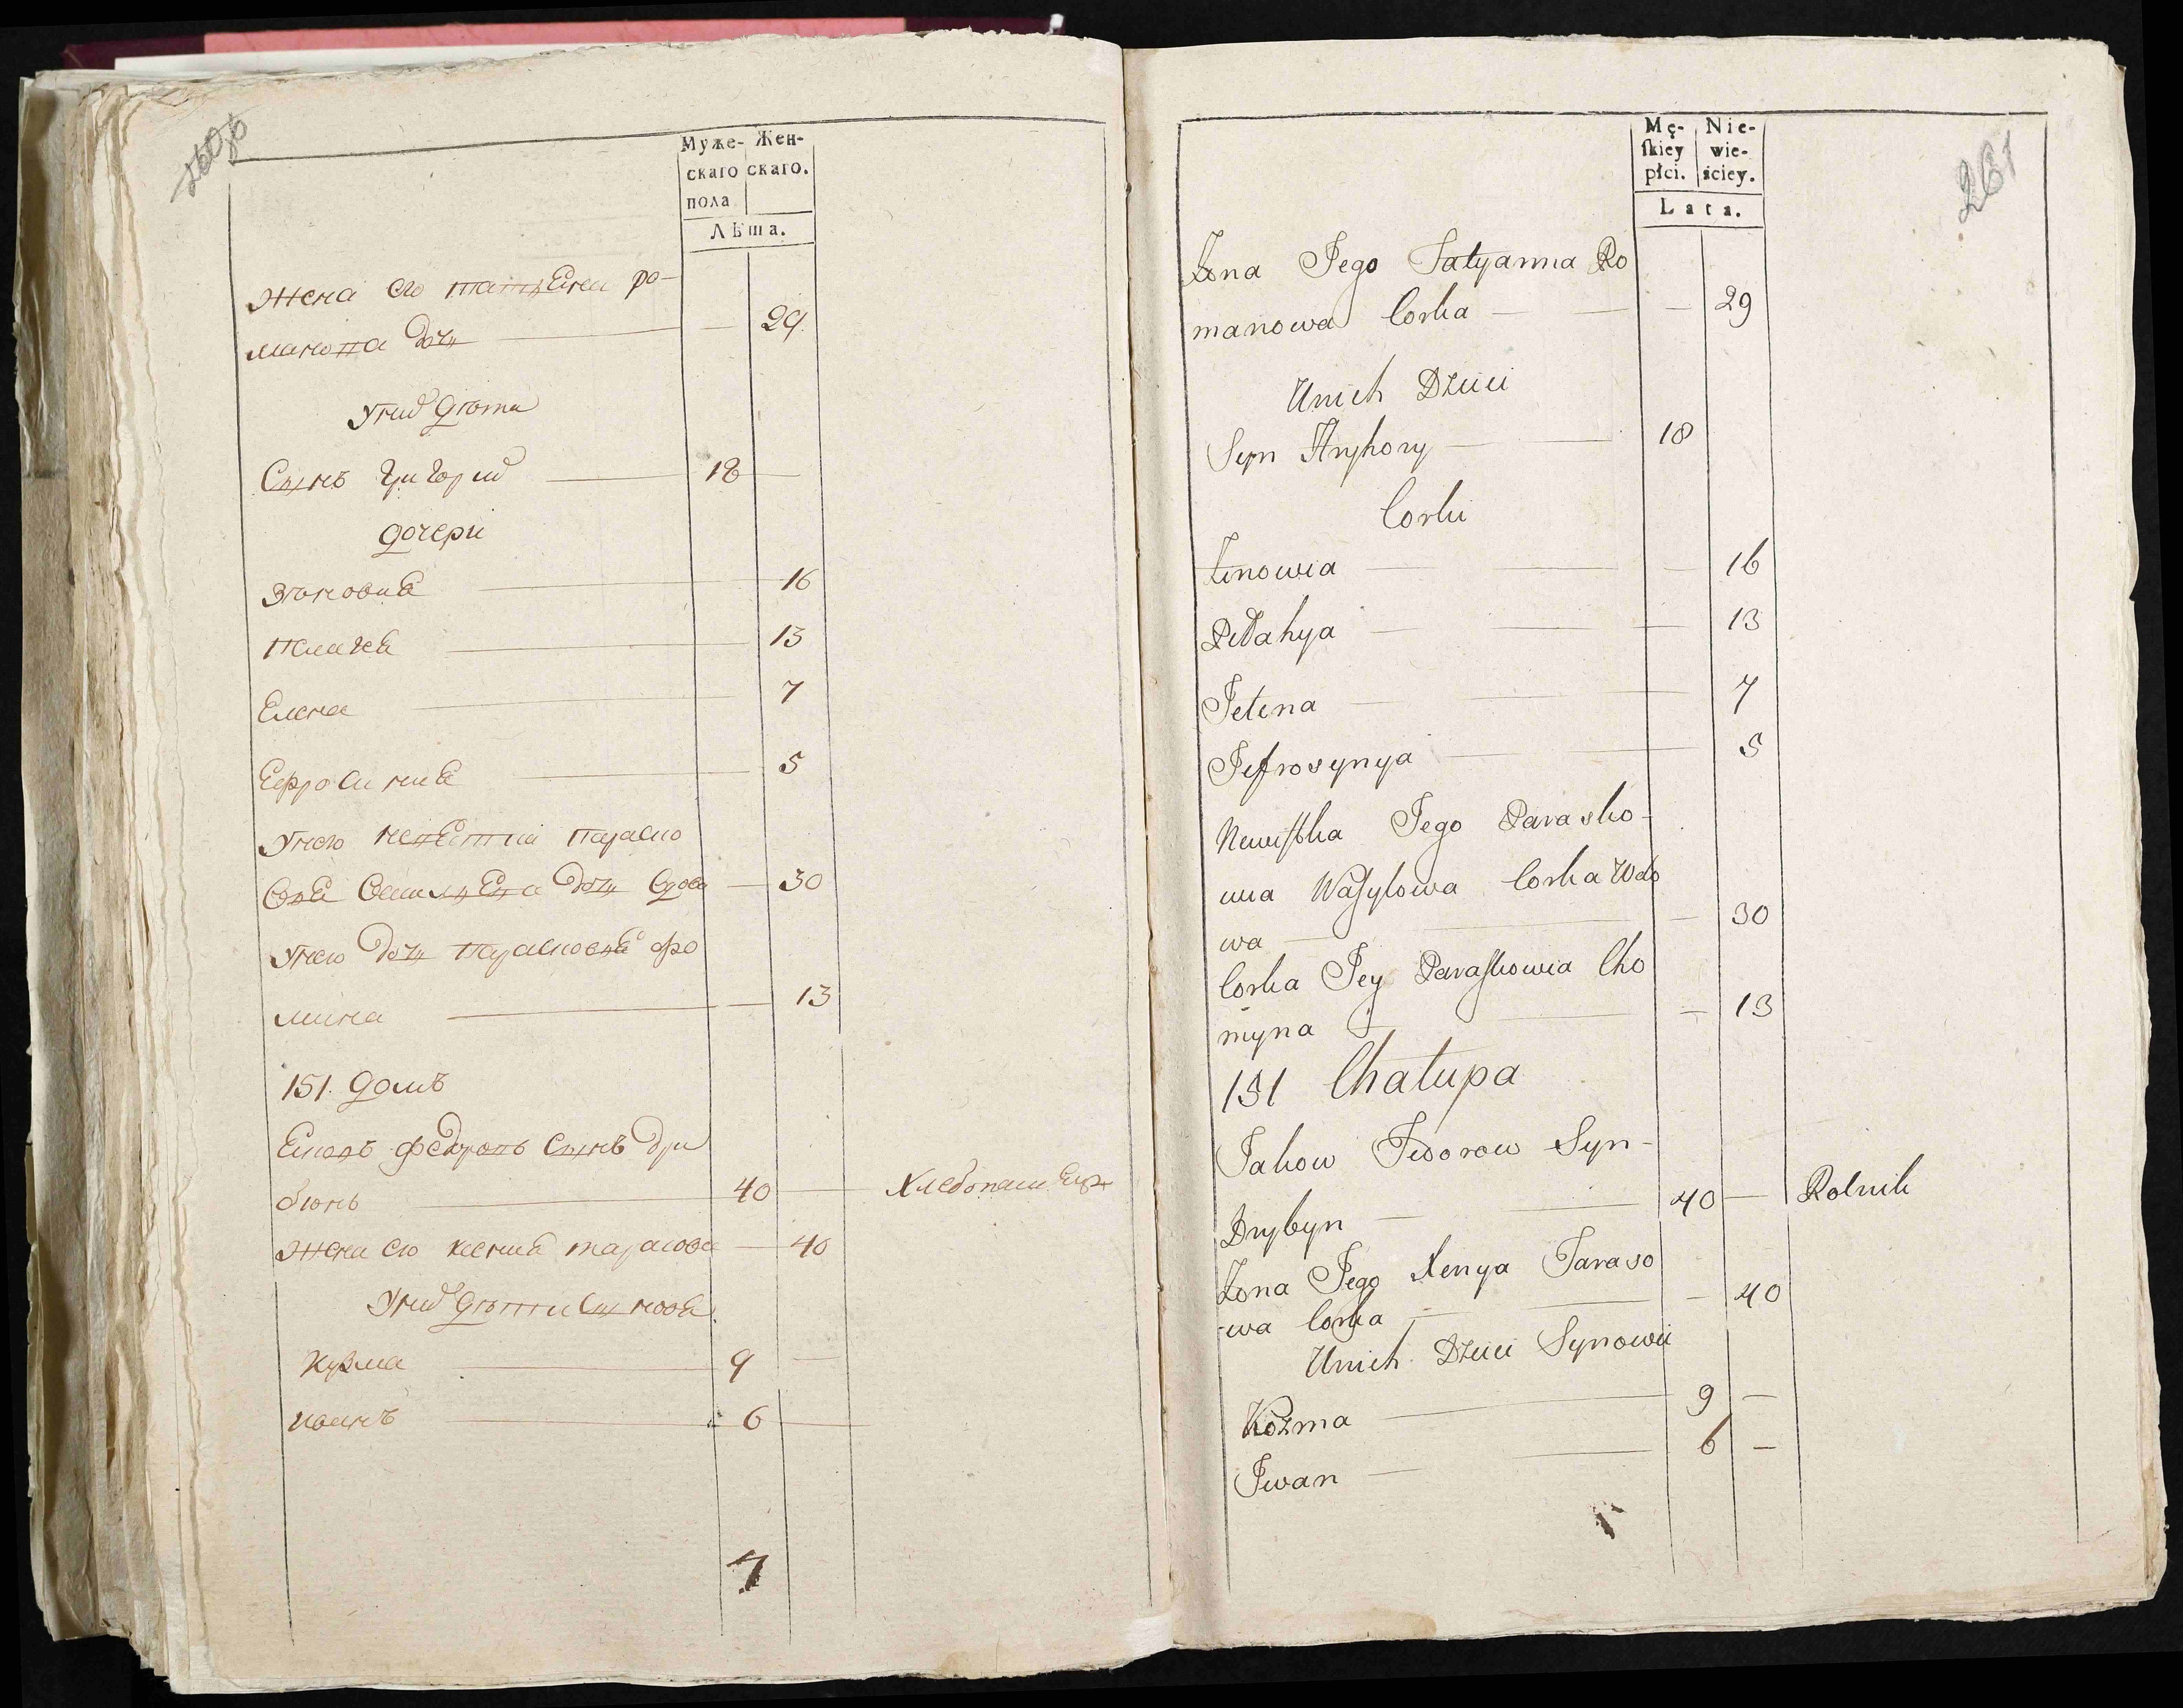 Муже- Жен-
скаго скаго.
пола
Лѣта.
Жена его татьяна ро-
манова дочь — 29
У них дѣти
Сынъ Григорий 18 —
дочери
Зѣновия 16
Пелагея 13
Елена 7
Ефросиния 5
У него невестка параско
вя васильева дочь вдова — 30
У нее дочь парасковя фо
мина — 13
151. домъ
Яковъ федоровъ сынъ дри
бинъ 40 — Хлебопашецъ
Жена его ксения тарасова — 40
У них дѣти сыновя
Кузма 9 —
иванъ 6 —
7
261
Mę- Nie-
ſkiey wie-
płci. ściey.
Lata.
Zona Jego Tatyanna Ro
manowa Corka — 29
Unich Dzieci
Syn Hryhory 18
Corki
Zinowia — 16
Pełahya — 13
Jelena — 7
Jefrosynya 5
Newiſtka Jego Parasko-
wia Waſylowa Corka Wdo
wa — 30
Corka Jey Paraſkowia Cho
myna — 13
151 Chałupa
Jakow Fedorow Syn-
Drybyn 40 — Rolnik
Zona Jego Xenya Taraso
-wa Corka — 40
Unich Dzieci Synowie
Kozma 9 —
Jwan 6 —